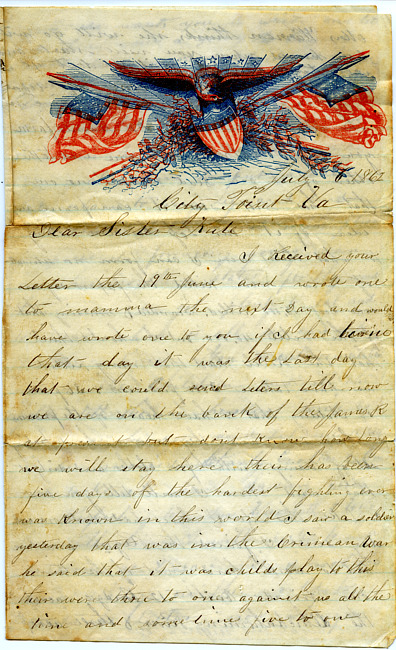 July 1862
City Point Va
Dear Sister Kate
I Received your
Letter the 19th June and wrote one
to mamma the next day and would
have wrote one to you if I had
that day it was the Last day
that we could send leters till now
we are on the bank of the James R
at present but dont know how long
we will stay here their has been
five days of the hardest fighting ever
was Known in this world I saw a soldier
yesterday that was in the Crimean War
he said that it was childs play to this
their were three to one against us all the
time and some times five to one